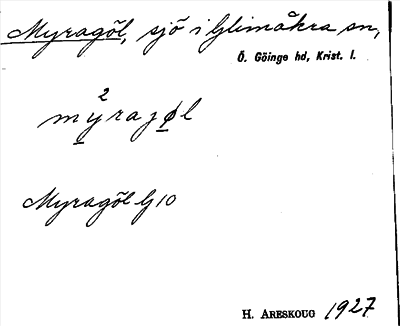 Myragöl, sjö i Glimåkra sn,
Ö. Göinge hd, Krist. l.
2
myrajøl
Myragöl G 10
H. Areskoug 1927